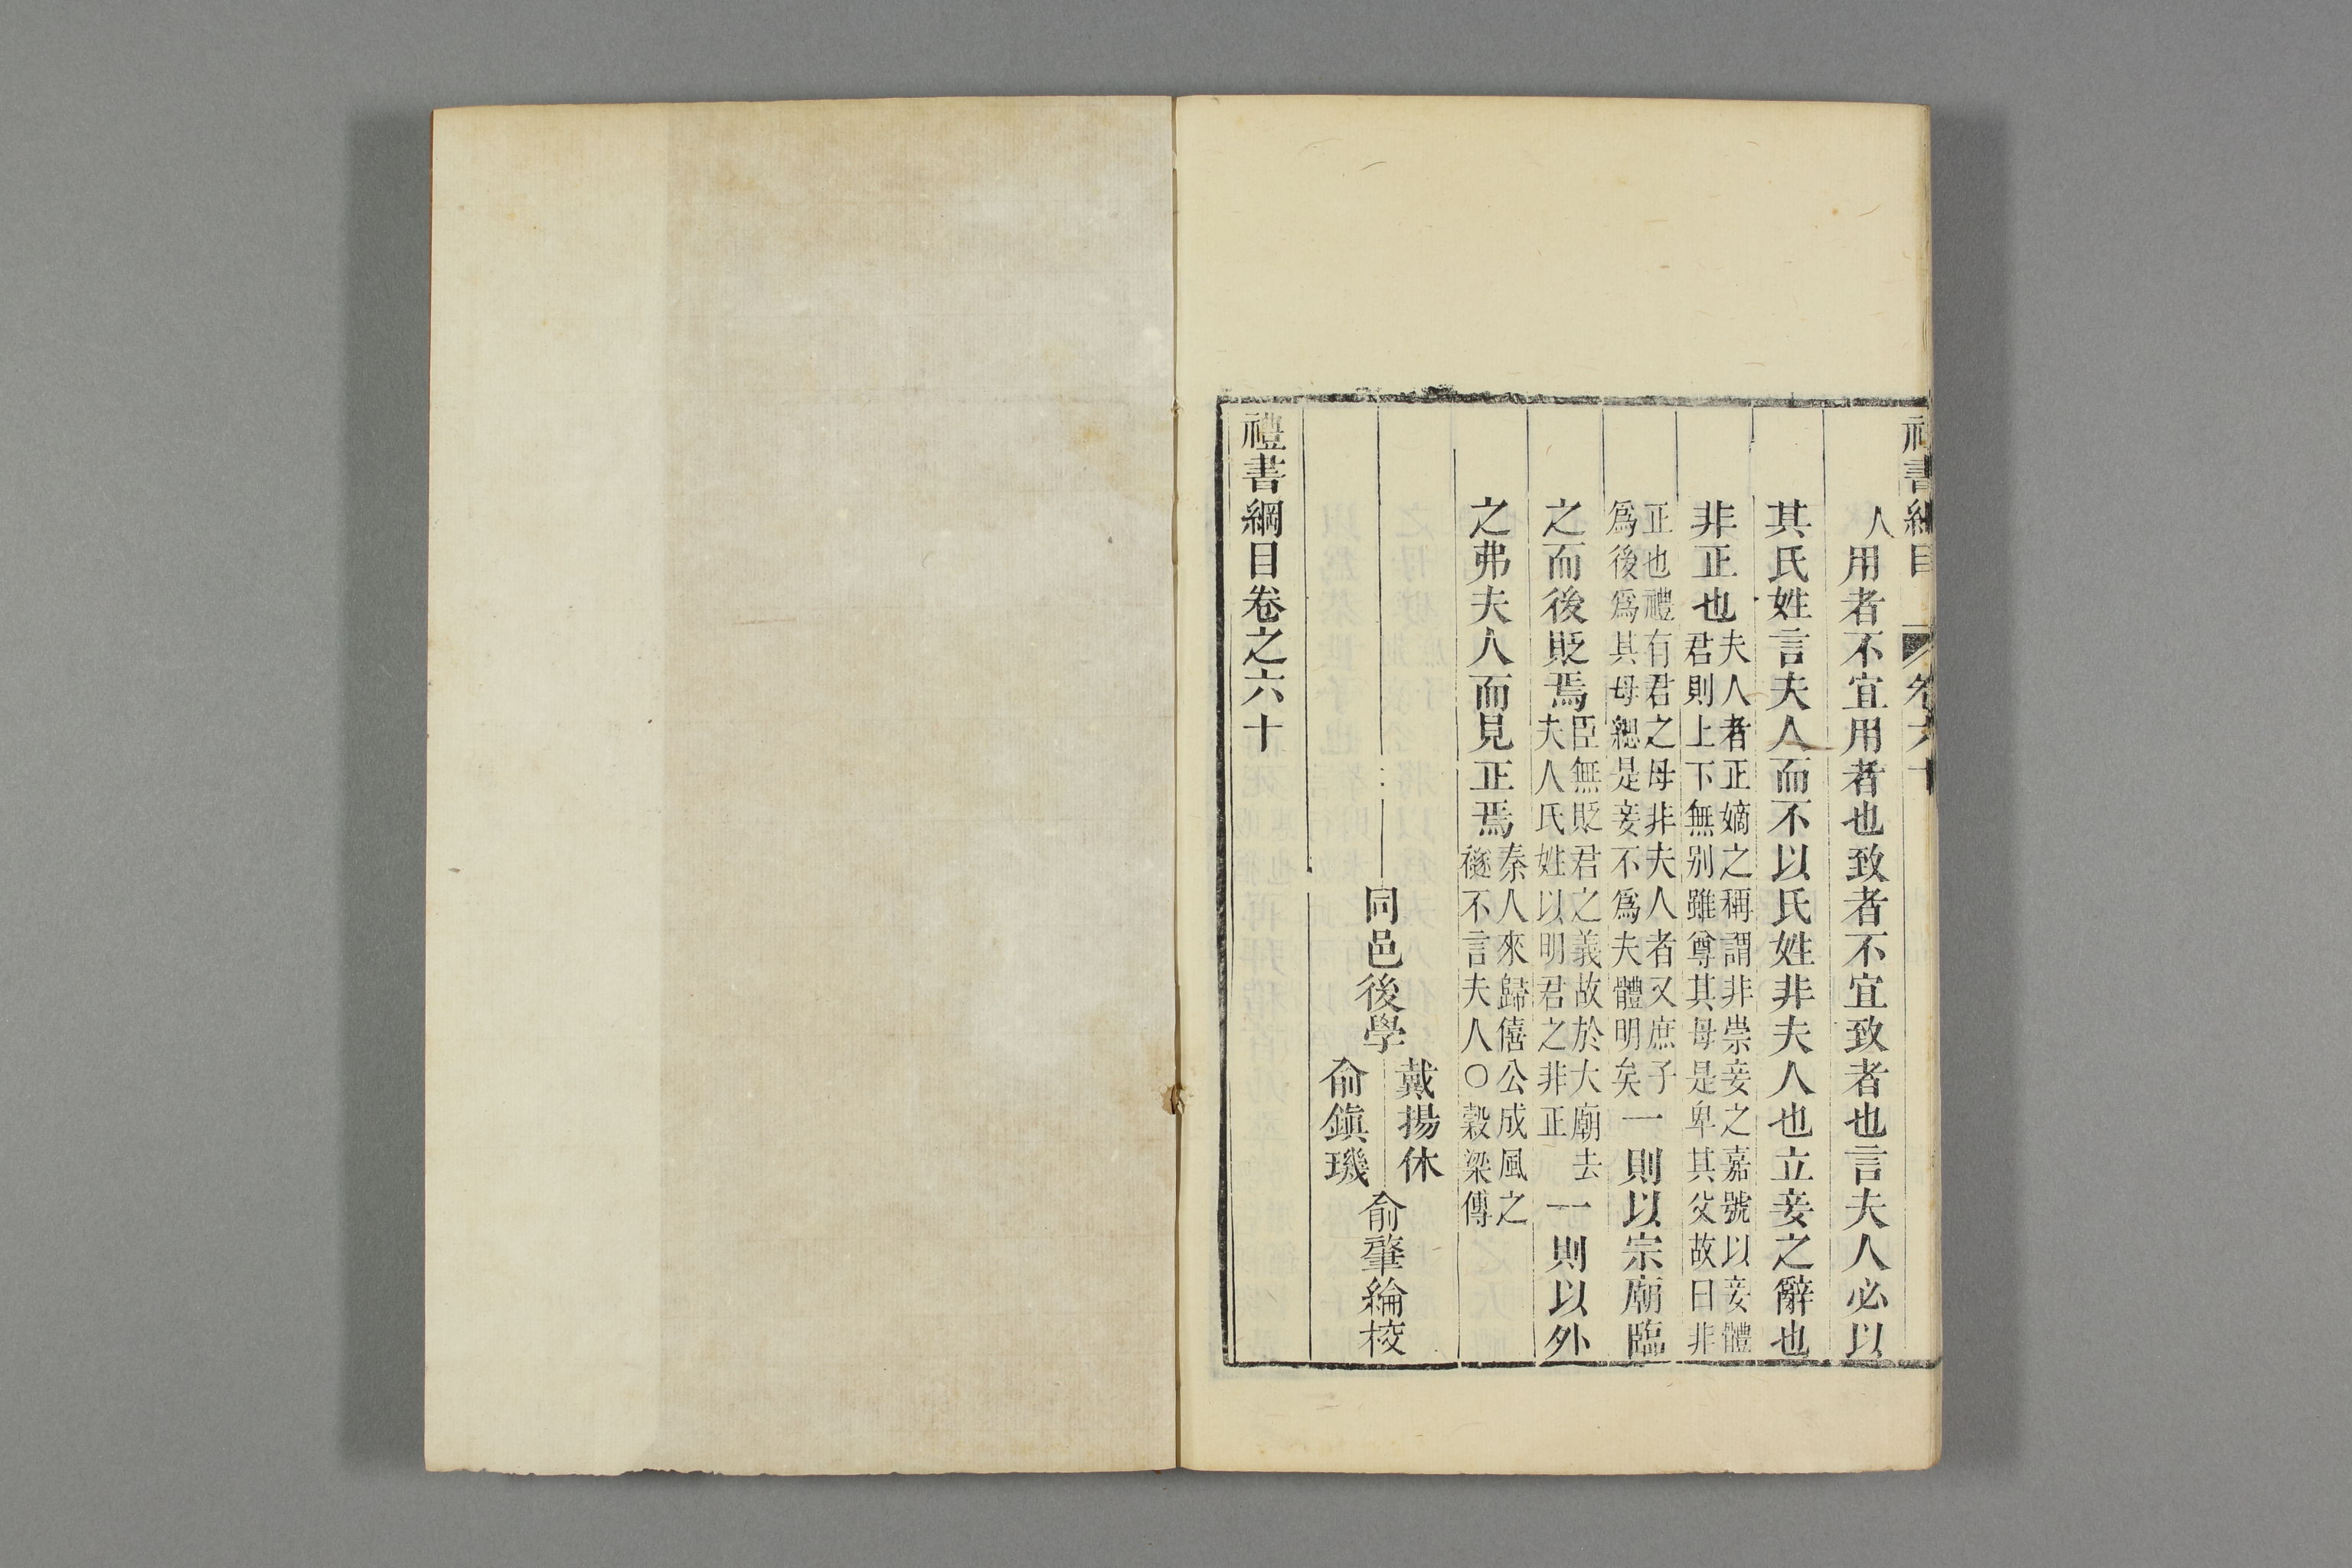 禮書綱目 卷六十
人用者不宜用者也致者不宜致者也言夫人必以
其氏姓言夫人而不以氏姓非夫人也立妾之辭也
非正也夫人者正嫡之稱謂非崇妾之嘉號以妾體
君則上下無别雖尊其母是卑其父故曰非
正也禮有君之母非夫人者又庶子
爲後爲其母緦是妾不爲夫體明矣一則以宗廟臨
之而後貶焉臣無貶君之義故於大廟去
夫人氏姓以明君之非正一則以外
之弗夫人而見正焉秦人來歸僖公成風之
襚不言夫人○穀梁傳
同邑後學
戴揚休
俞鎭璣
俞肇綸校
禮書綱目卷之六十